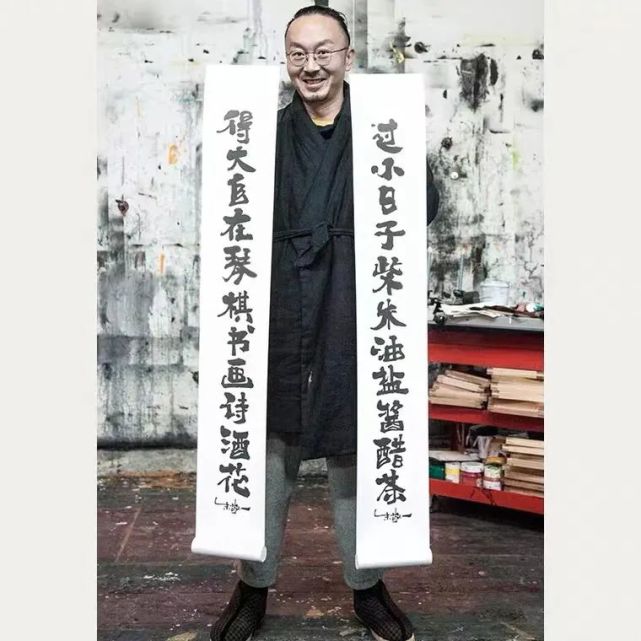 过小日子柴米油盐酱醋茶
得大自在琴棋书画诗酒花